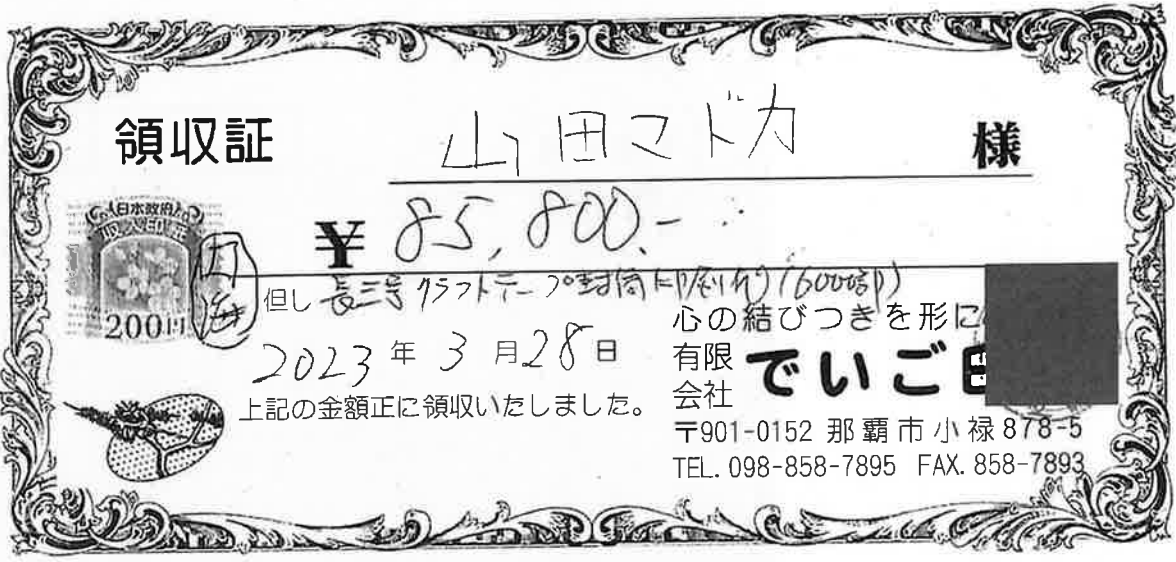 領収証 山田マドカ 様
日本政府
収入印紙
200円
¥ 85,800.-
但し 長三号クラフトテープ封筒印刷代(6000部)
2023年3月28日
上記の金額正に領収いたしました。
心の結びつきを形に
有限会社 でいご
〒901-0152 那覇市小禄878-5
TEL. 098-858-7895 FAX. 858-7893